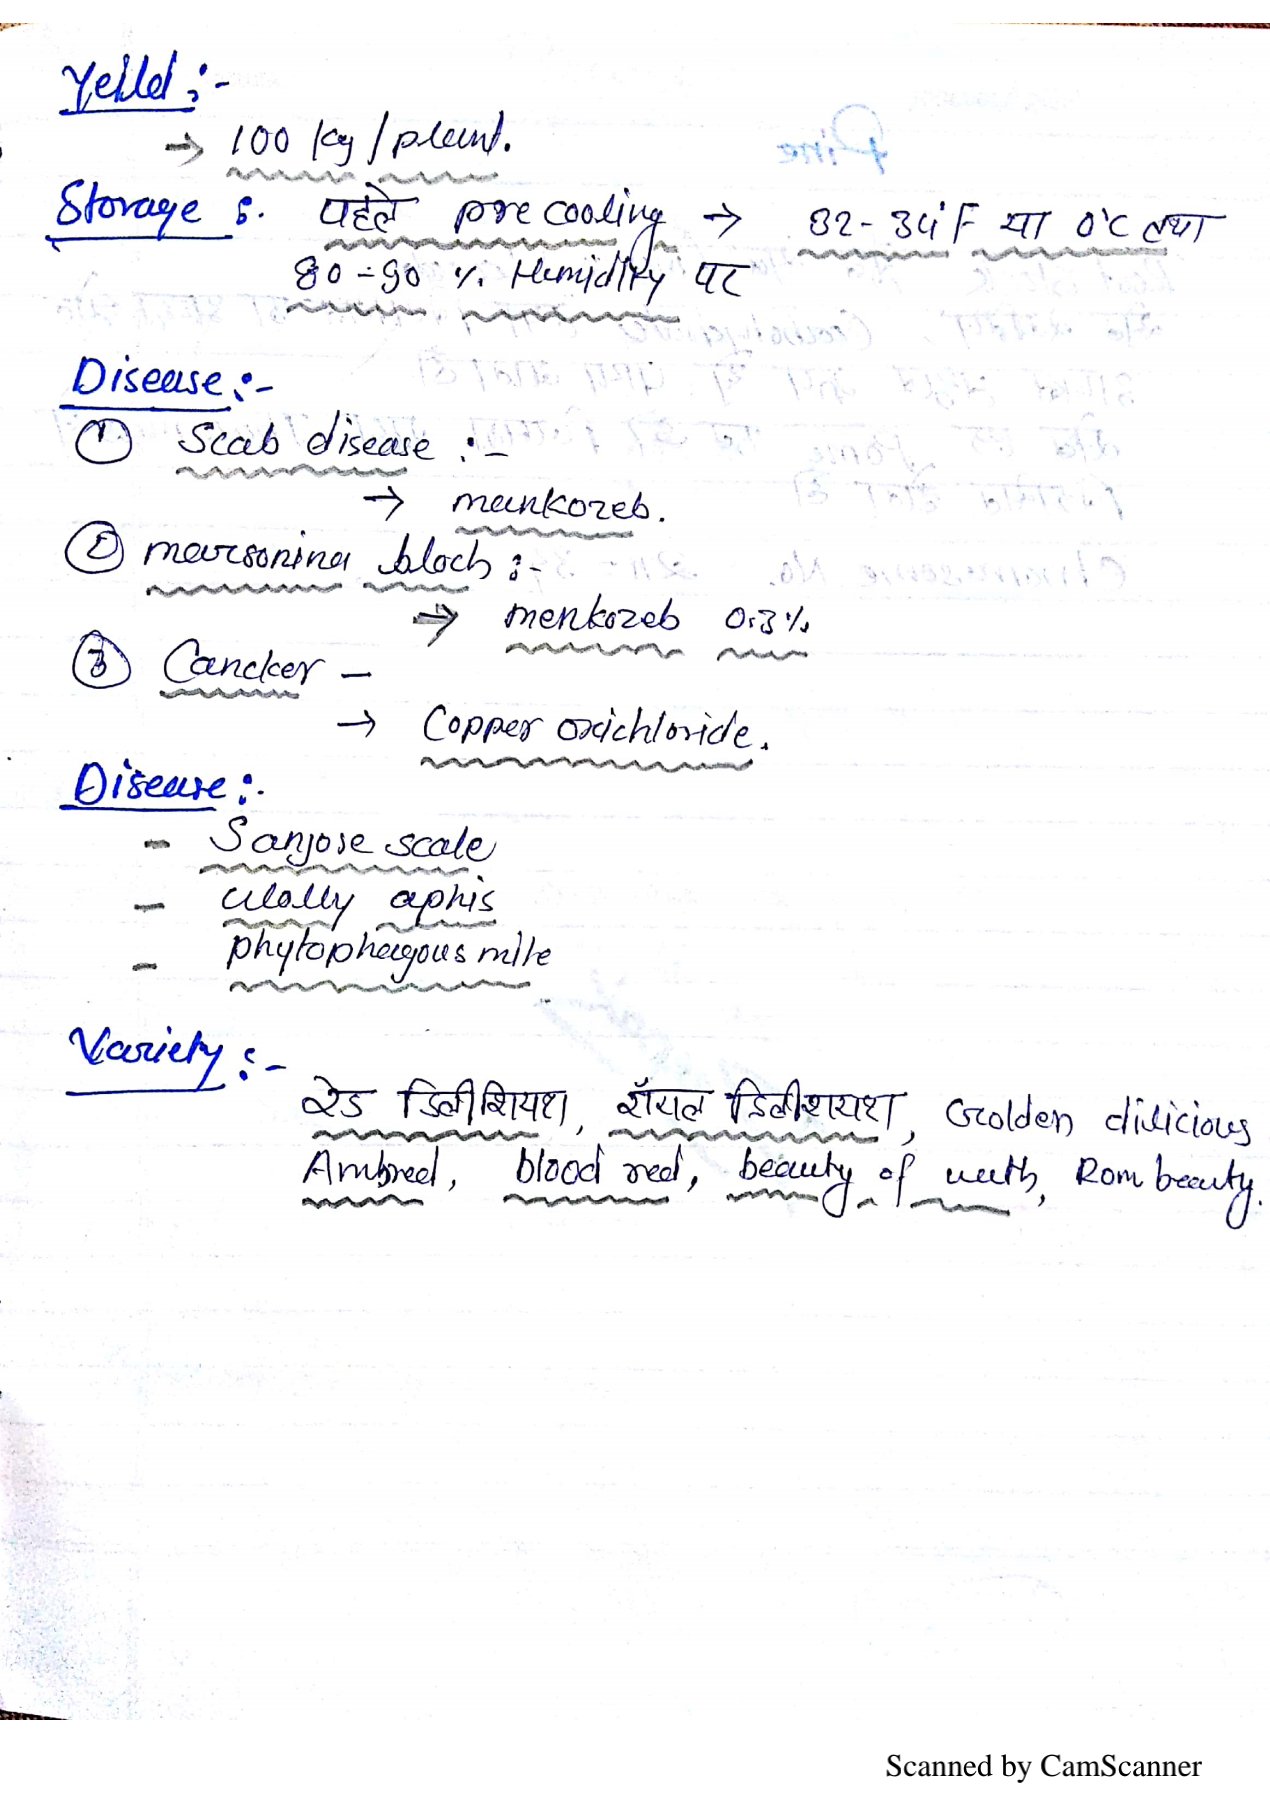 Yeild :-
→ 100 kg / plant.
Storage :. पहले pre cooling → 32-34°F या 0°C तथा
80-90 % Humidity पर
Disease :-
① Scab disease :-
→ mankozeb.
② marsonina bloch :-
→ menkozeb 0.3%
③ Cancker -
→ Copper oxichloride.
Disease :-
- Sanjose scale
- wolly aphis
- phytophagous mite
Variety :-
रेड डिलीशियश, रॉयल डिलीशयश, Golden dilicious
Ambred, blood red, beauty of Rom beauty.
Scanned by CamScanner